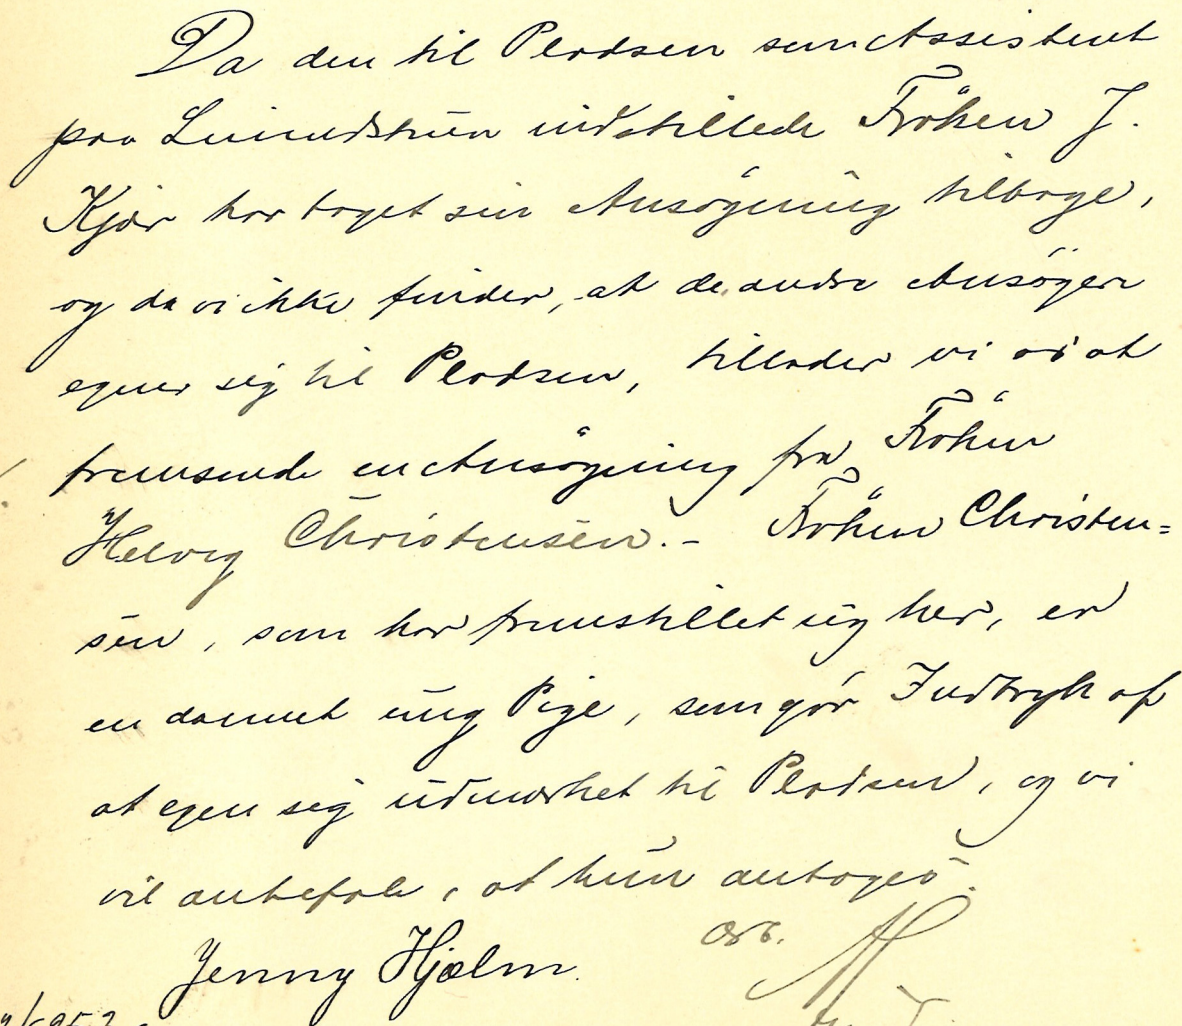 Da den til Pladsen som Assistent
paa indstillede Fröken J.
Kjær har taget sin Ansøgning tilbage,
og da vi ikke finder, at de andre Ansøgere
egner sig til Pladsen, tillader vi os at
fremsende en Ansøgning fra Fröken
Helvig Christensen. - Fröken Christen=
sen, som har fremstillet sig her, er
en dannet ung Pige, som gør Indtryk af
at egne sig udmærket til Pladsen, og vi
vil anbefale, at hun antages.
Jenny Hjælm.